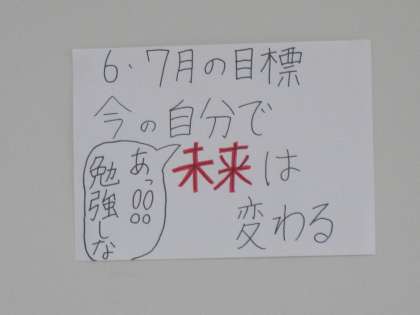 6・7月の目標
今の自分で
未来は
変わる
あっ○○○○
勉強しな